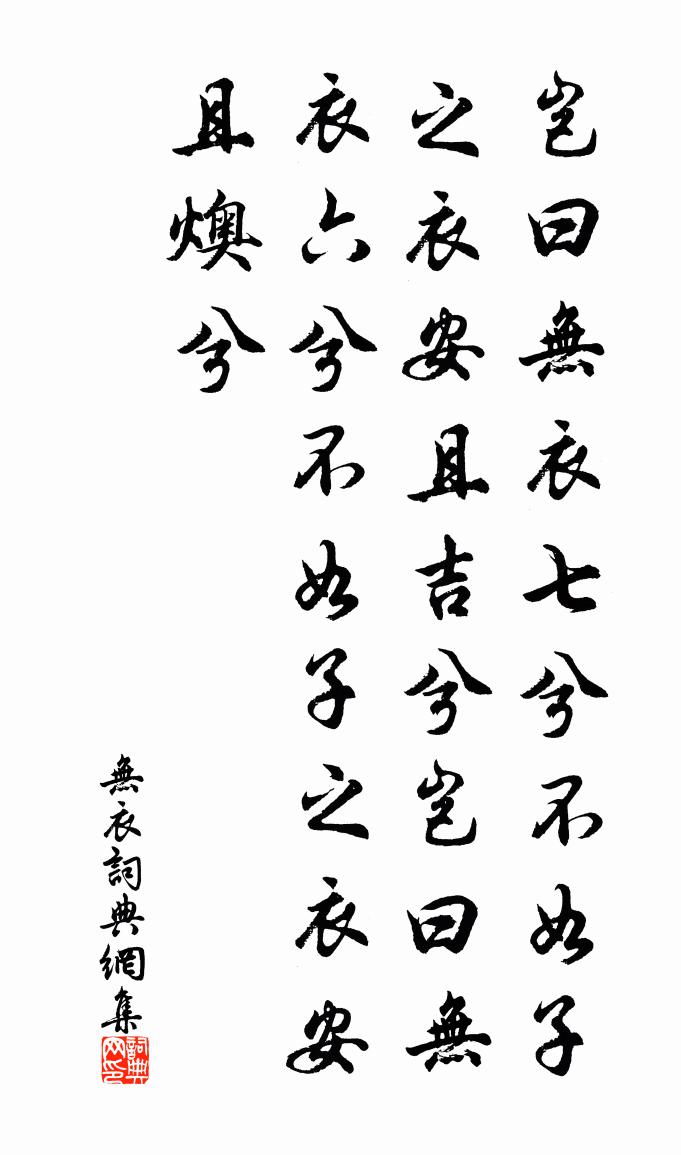 豈曰無衣七兮不如子
之衣安且吉兮豈曰無
衣六兮不如子之衣安
且燠兮
無衣詞典網集
詞典网印